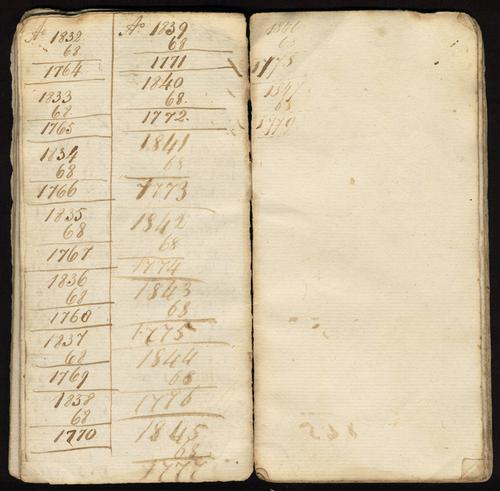 Ao 1832
68
1764
1833
68
1765
1834
68
1766
1835
68
1767
1836
68
1768
1837
68
1769
1838
68
1770
Ao 1839
68
1771
1840
68
1772
1841
68
1773
1842
68
1774
1843
68
1775
1844
68
1776
1845
68
1777
1846
68
1778
1847
68
1779